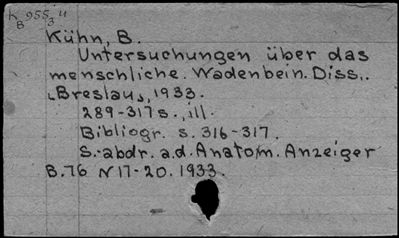 K 955 u
B 3
Kühn, B.
Untersuchungen über das
menschliche Wadenbein. Diss.
Breslau, 1933.
289-317 s., ill.
Bibliogr. s. 316-317.
S.-abdr. a.d. Anatom. Anzeiger
B.76 N 17-20. 1933.